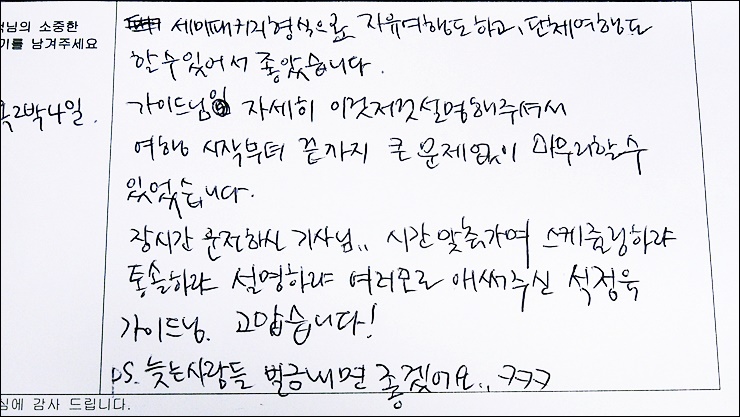 님의 소중한
기를 남겨주세요
세미패키지형식으로 자유여행도하고, 단체여행도
할수있어서 좋았습니다.
옥2박4일.
가이드님이 자세히 이것저것설명해주셔서
여행 시작부터 끝까지 큰 문제없이 마무리할수
있었습니다.
장시간 운전하신 기사님,, 시간맞춰가며 스케쥴링하랴
통솔하랴 설명하랴 여러모로 애써주신 석정욱
가이드님. 고맙습니다!
PS. 늦는사람들 벌금내면 좋겠어요.. ㅋㅋㅋ
심에 감사 드립니다.